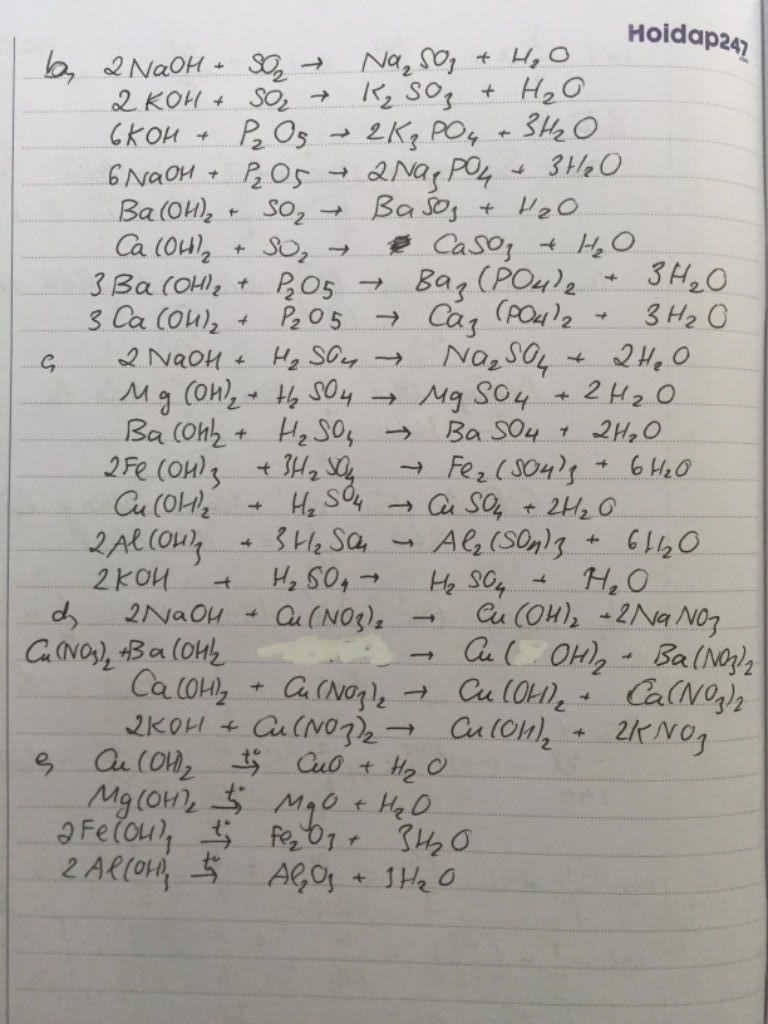 Hoidap247
b, 2NaOH + SO₂ → Na₂SO₃ + H₂O
2KOH + SO₂ → K₂SO₃ + H₂O
6KOH + P₂O₅ → 2K₃PO₄ + 3H₂O
6NaOH + P₂O₅ → 2Na₃PO₄ + 3H₂O
Ba(OH)₂ + SO₂ → BaSO₃ + H₂O
Ca(OH)₂ + SO₂ → CaSO₃ + H₂O
3Ba(OH)₂ + P₂O5 → Ba₃(PO4)₂ + 3H₂O
3Ca(OH)₂ + P₂O5 → Ca₃(PO4)₂ + 3H₂O
c, 2NaOH + H₂SO₄ → Na₂SO₄ + 2H₂O
Mg(OH)₂ + H₂SO₄ → MgSO₄ + 2H₂O
Ba(OH)₂ + H₂SO₄ → BaSO4 + 2H₂O
2Fe(OH)₃ + 3H₂SO₄ → Fe₂(SO4)₃ + 6H₂O
Cu(OH)₂ + H₂SO₄ → CuSO₄ + 2H₂O
2Al(OH)₃ + 3H₂SO₄ → Al₂(SO₄)₃ + 6H₂O
2KOH + H₂SO₄ → H₂SO₄ + H₂O
d, 2NaOH + Cu(NO₃)₂ → Cu(OH)₂ + 2NaNO₃
Cu(NO₃)₂ + Ba(OH)₂ → Cu(OH)₂ + Ba(NO₃)₂
Ca(OH)₂ + Cu(NO₃)₂ → Cu(OH)₂ + Ca(NO₃)₂
2KOH + Cu(NO₃)₂ → Cu(OH)₂ + 2KNO₃
e, Cu(OH)₂ t°→ CuO + H₂O
Mg(OH)₂ t°→ MgO + H₂O
2Fe(OH)₃ t°→ Fe₂O₃ + 3H₂O
2Al(OH)₃ t°→ Al₂O₃ + 3H₂O